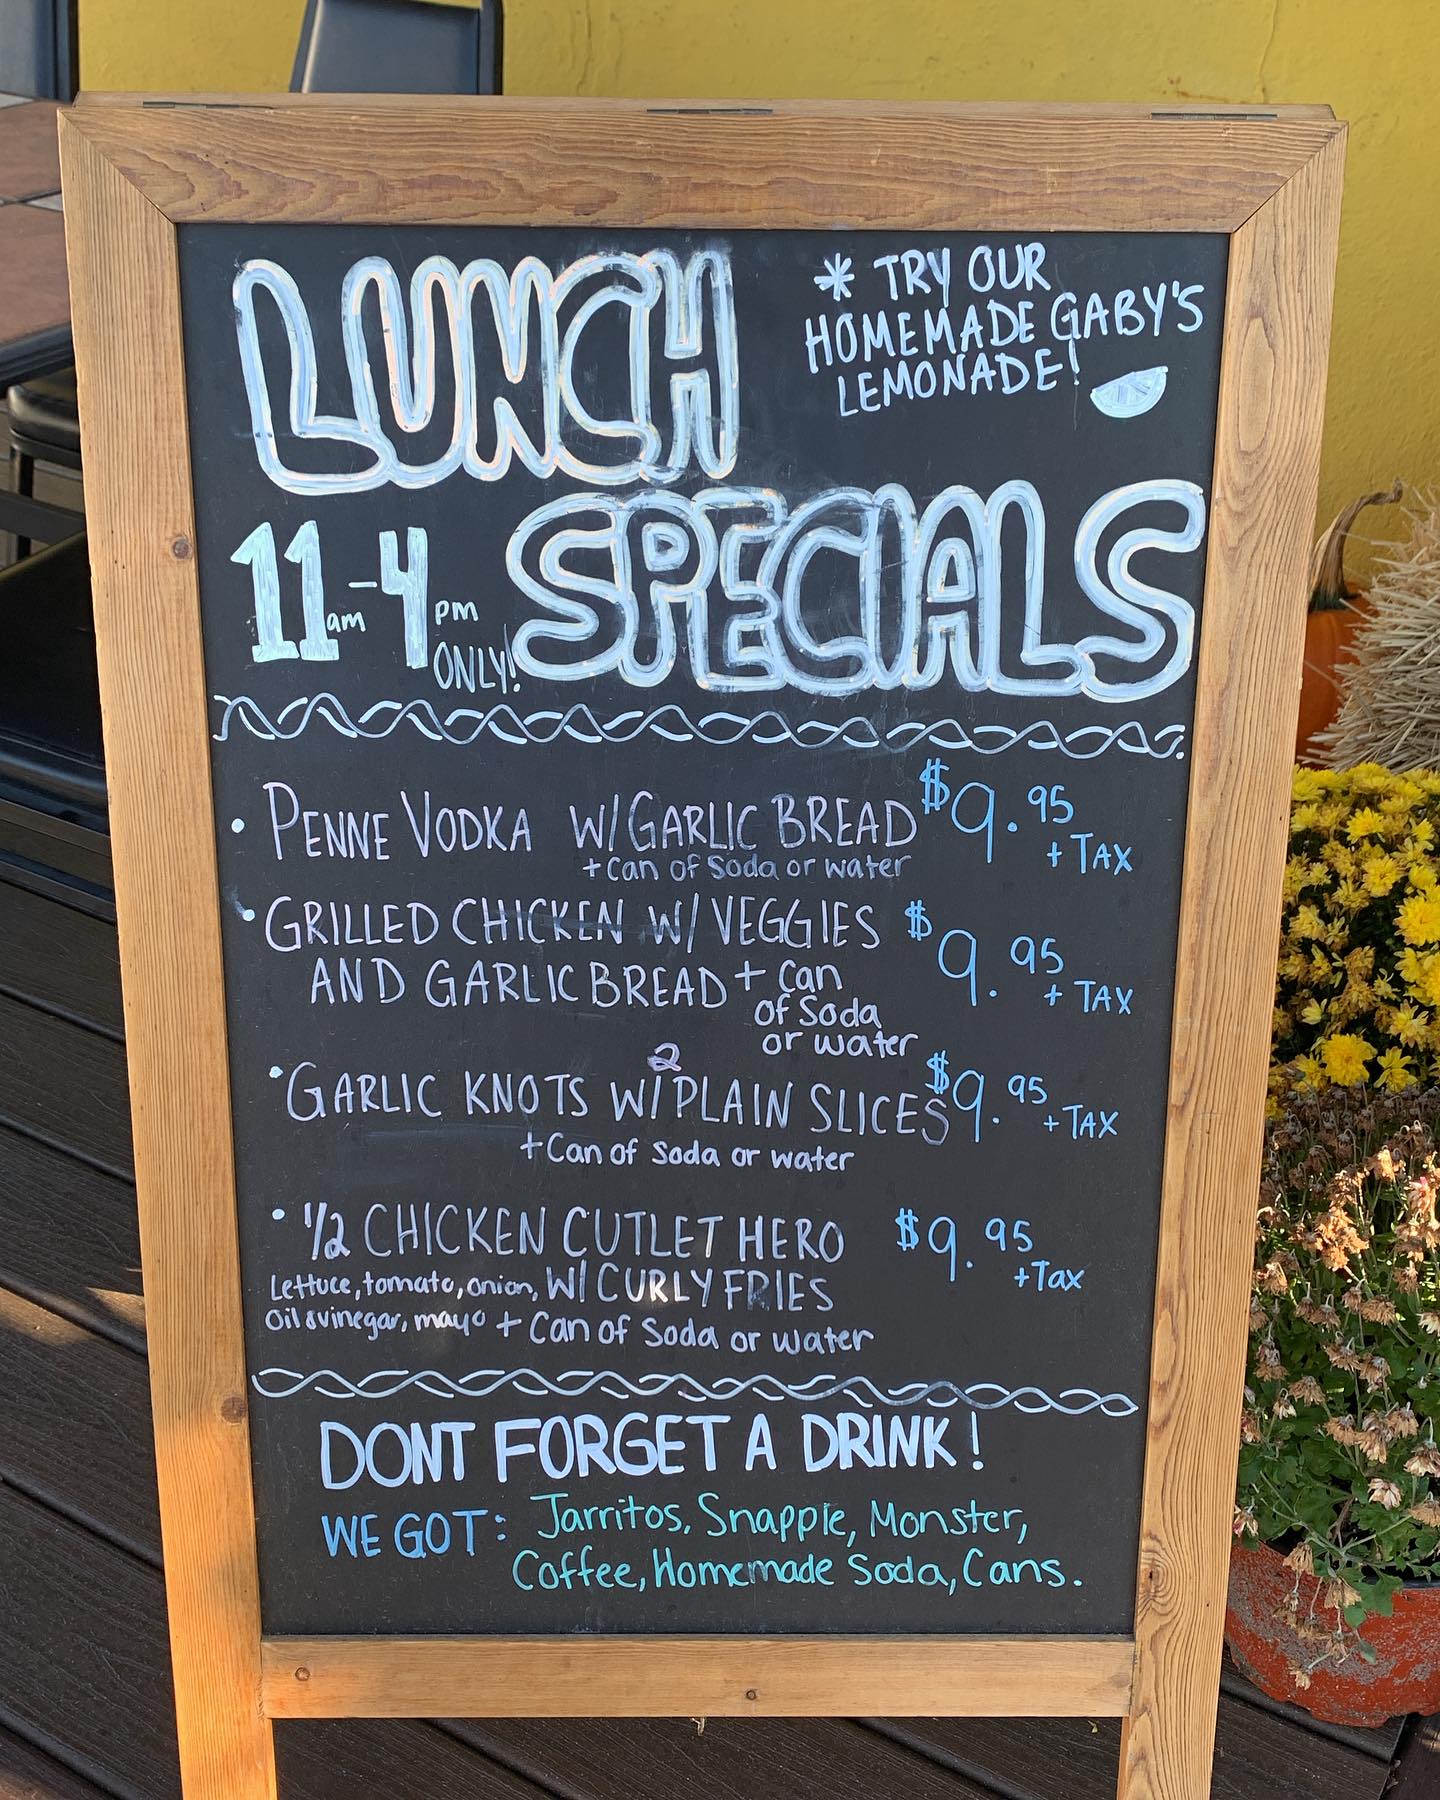 LUNCH
* TRY OUR
HOMEMADE GABY'S
LEMONADE!
SPECIALS
11am-4pm
ONLY!
• PENNE VODKA W/ GARLIC BREAD $9.95
+ can of Soda or water + TAX
• GRILLED CHICKEN W/ VEGGIES $9.95
AND GARLIC BREAD + can + TAX
of Soda
or water
• GARLIC KNOTS W/ 2 PLAIN SLICES $9.95
+ TAX
+ Can of Soda or water
• 1/2 CHICKEN CUTLET HERO $9.95
+ Tax
Lettuce, tomato, onion, W/ CURLY FRIES
Oil & vinegar, mayo + Can of Soda or water
DONT FORGET A DRINK!
WE GOT: Jarritos, Snapple, Monster,
Coffee, Homemade Soda, Cans.